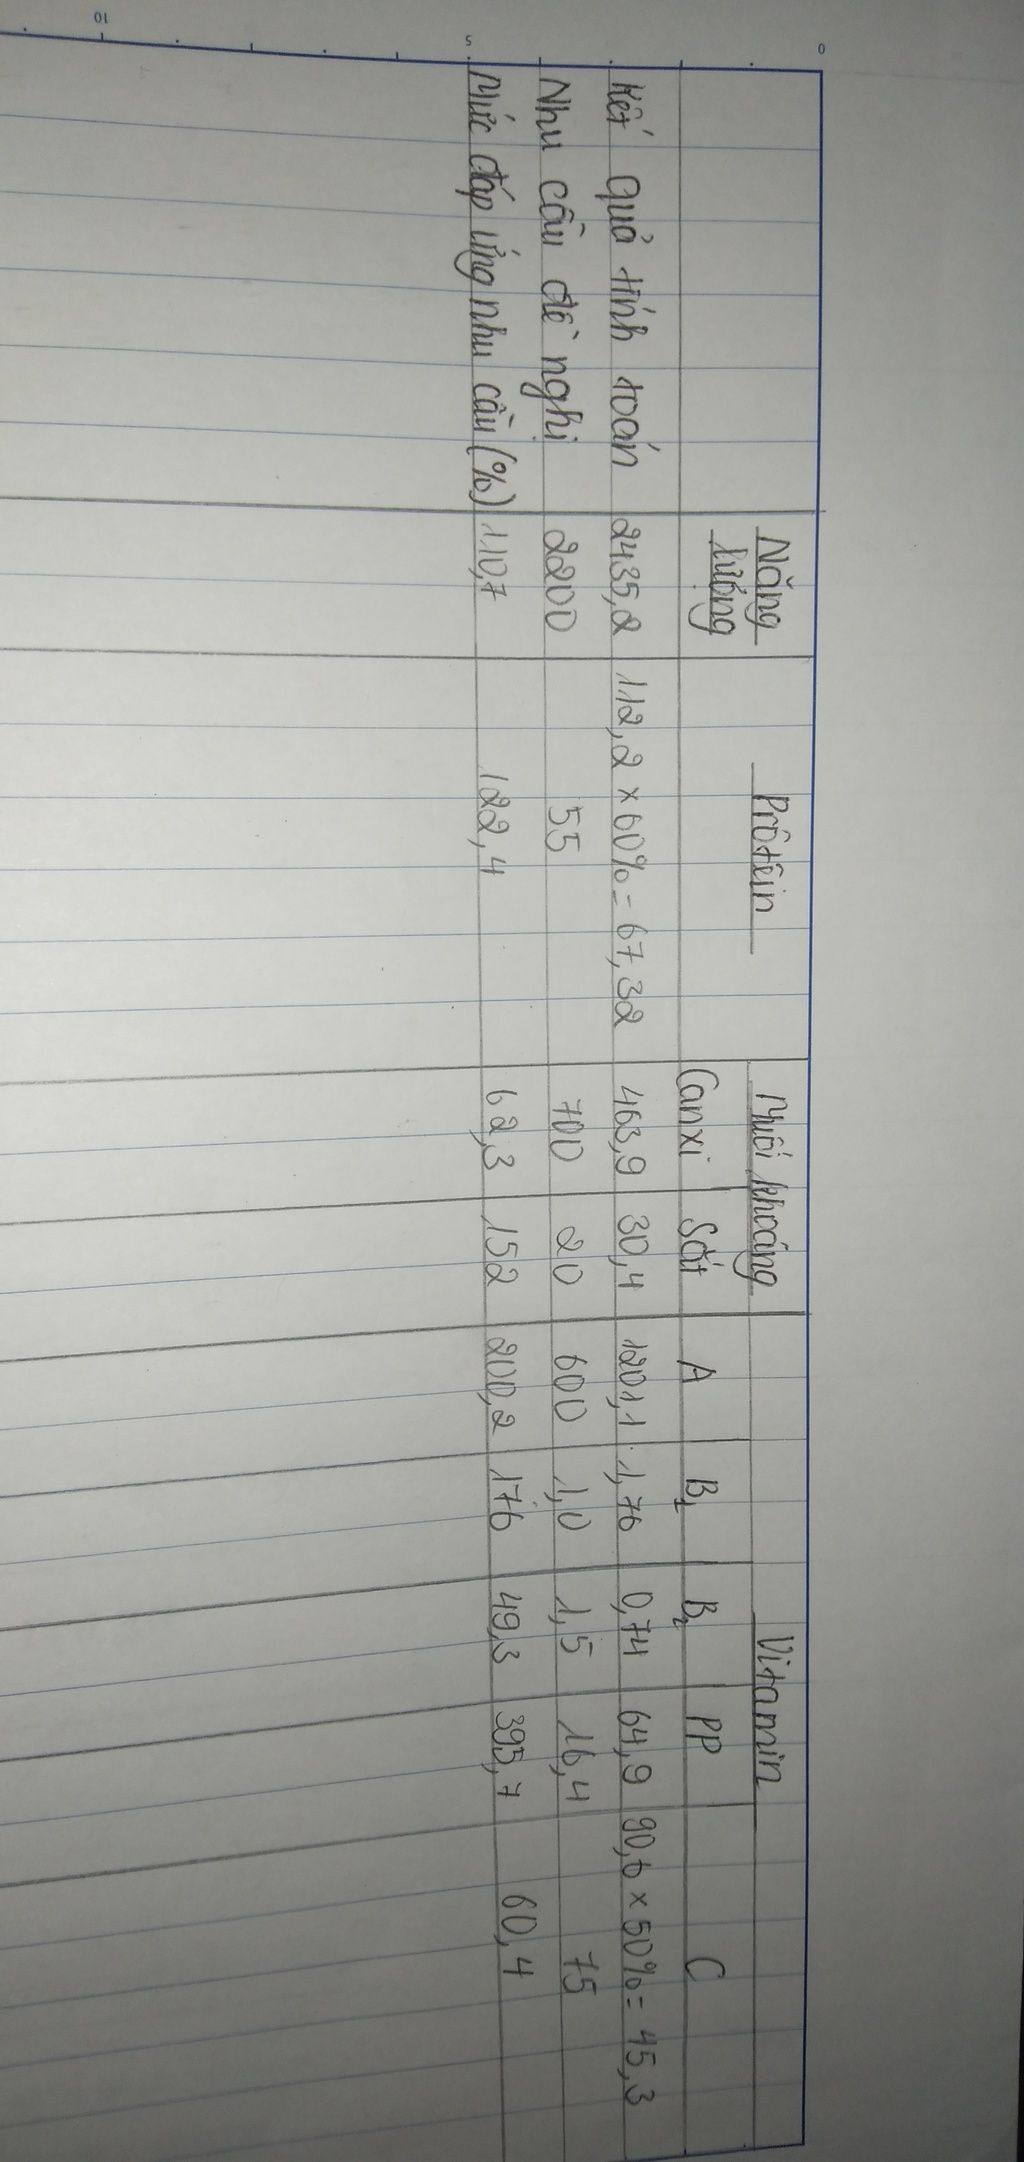 0 5 10
Năng lượng Prôtêin Muối khoáng Vitamin
Canxi Sắt A B1 B2 PP C
Kết quả tính toán 2435,2 112,2 × 60% = 67,32 463,9 30,4 1201,1 1,76 0,74 64,9 90,6 × 50% = 45,3
Nhu cầu đề nghị 2200 55 700 20 600 1,0 1,5 16,4 75
Mức đáp ứng nhu cầu (%) 110,7 122,4 62,3 152 200,2 176 49,3 395,7 60,4